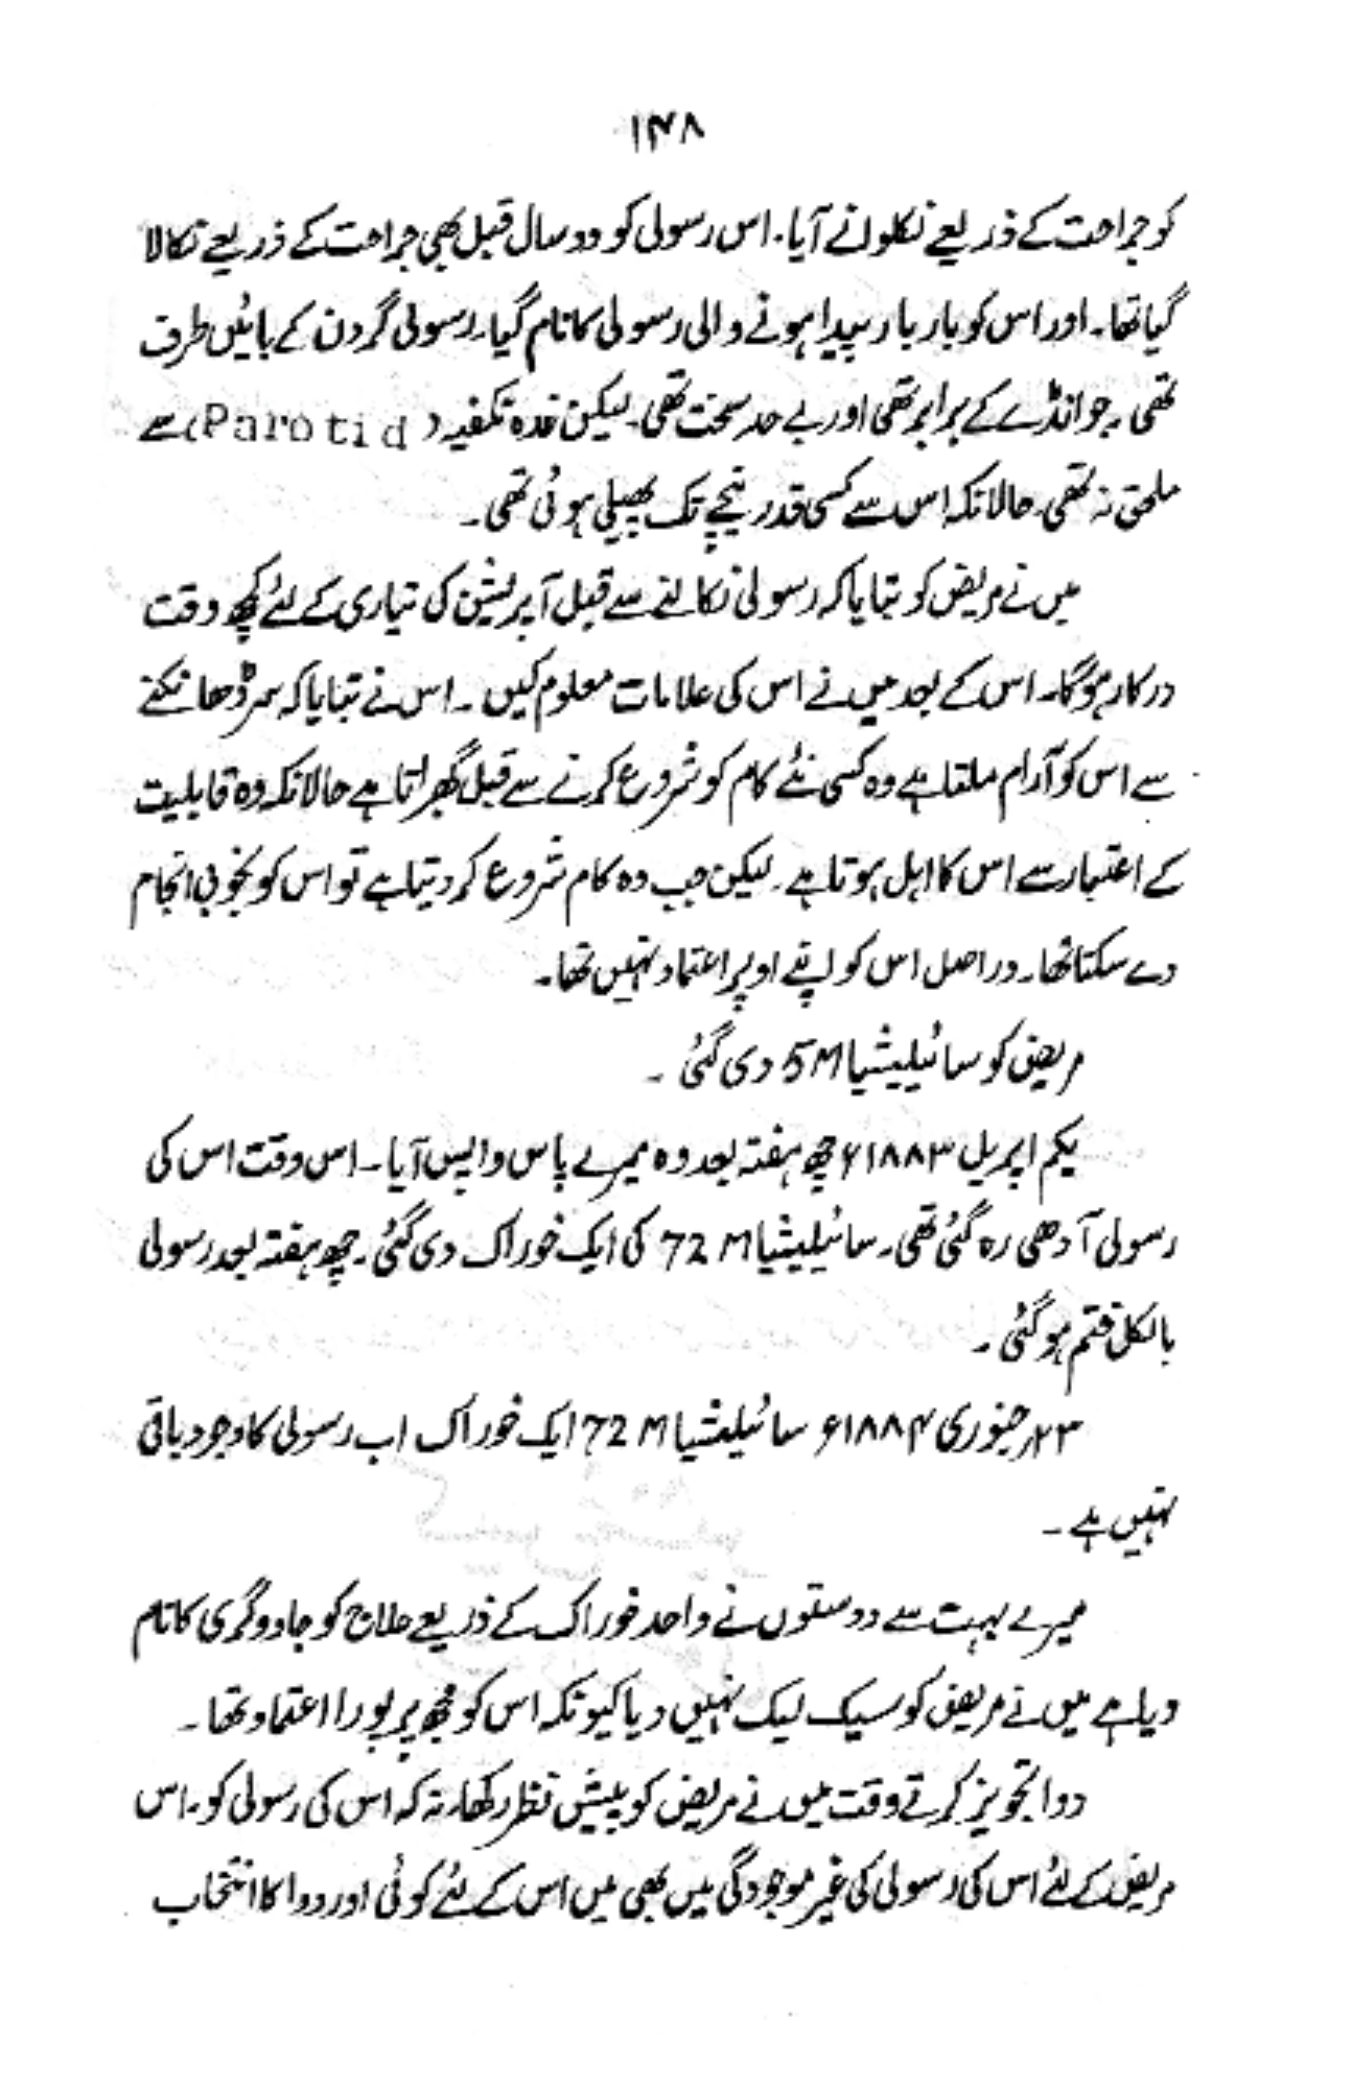 ۱۴۸
کو جراحت کے ذریعے نکلوانے آیا۔ اس رسولی کو دو سال قبل بھی جراحت کے ذریعے نکالا
گیا تھا۔ اور اس کو بار بار پیدا ہونے والی رسولی کا نام گیا۔ رسولی گردن کے بائیں طرف
تھی۔ جو انڈے کے برابر تھی اور بے حد سخت تھی۔ لیکن غدہ نکفیہ (Parotid) سے
ملحق نہ تھی۔ حالانکہ اس سے کسی قدر نیچے تک پھیلی ہوئی تھی۔
میں نے مریض کو بتایا کہ رسولی نکالنے سے قبل آپریشن کی تیاری کے لئے کچھ وقت
درکار ہوگا۔ اس کے بعد میں نے اس کی علامات معلوم کیں۔ اس نے بتایا کہ سر ڈھانکنے
سے اس کو آرام ملتا ہے وہ کسی نئے کام کو شروع کرنے سے قبل گھبراتا ہے حالانکہ وہ قابلیت
کے اعتبار سے اس کا اہل ہوتا ہے۔ لیکن جب وہ کام شروع کر دیتا ہے تو اس کو بخوبی انجام
دے سکتا تھا۔ دراصل اس کو اپنے اوپر اعتماد نہیں تھا۔
مریض کو سائیلیشیا 5M دی گئی۔
یکم اپریل ۱۸۸۳ء چھ ہفتہ بعد وہ میرے پاس واپس آیا۔ اس وقت اس کی
رسولی آدھی رہ گئی تھی۔ سائیلیشیا 72 M کی ایک خوراک دی گئی۔ چھ ہفتہ بعد رسولی
بالکل ختم ہو گئی۔
۲۳؍ جنوری ۱۸۸۴ء سائیلیشیا 72 M ایک خوراک اب رسولی کا وجود باقی
نہیں ہے۔
میرے بہت سے دوستوں نے واحد خوراک کے ذریعے علاج کو جادوگری کا نام
دیا ہے میں نے مریض کو سیک لیک نہیں دیا کیونکہ اس کو مجھ پر پورا اعتماد تھا۔
دوا تجویز کرتے وقت میں نے مریض کو پیش نظر رکھا نہ کہ اس کی رسولی کو۔ اس
مریض کے لئے اس کی رسولی کی غیر موجودگی میں بھی میں اس کے لئے کوئی اور دوا کا انتخاب